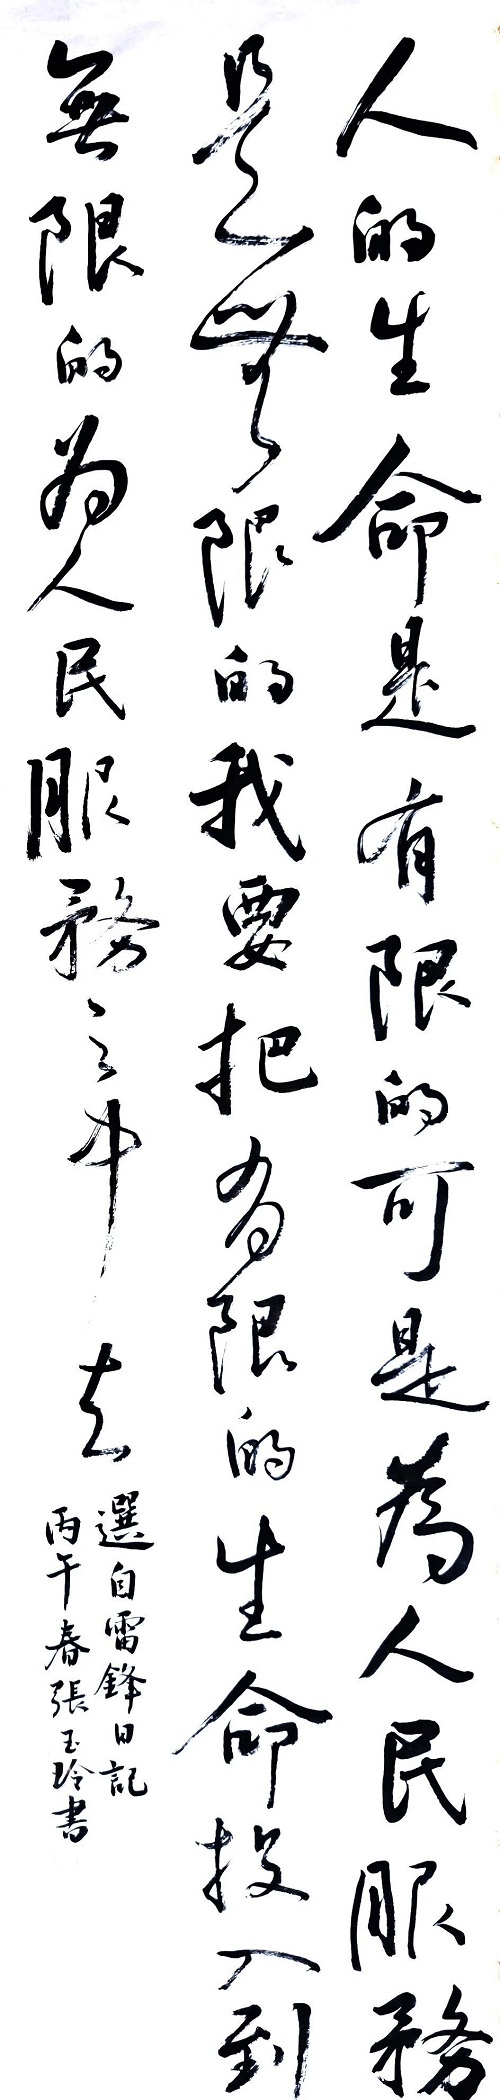 人的生命是有限的可是為人民服務
是無限的我要把有限的生命投入到
無限的为人民服務之中去
選自雷鋒日記
丙午春張玉玲書